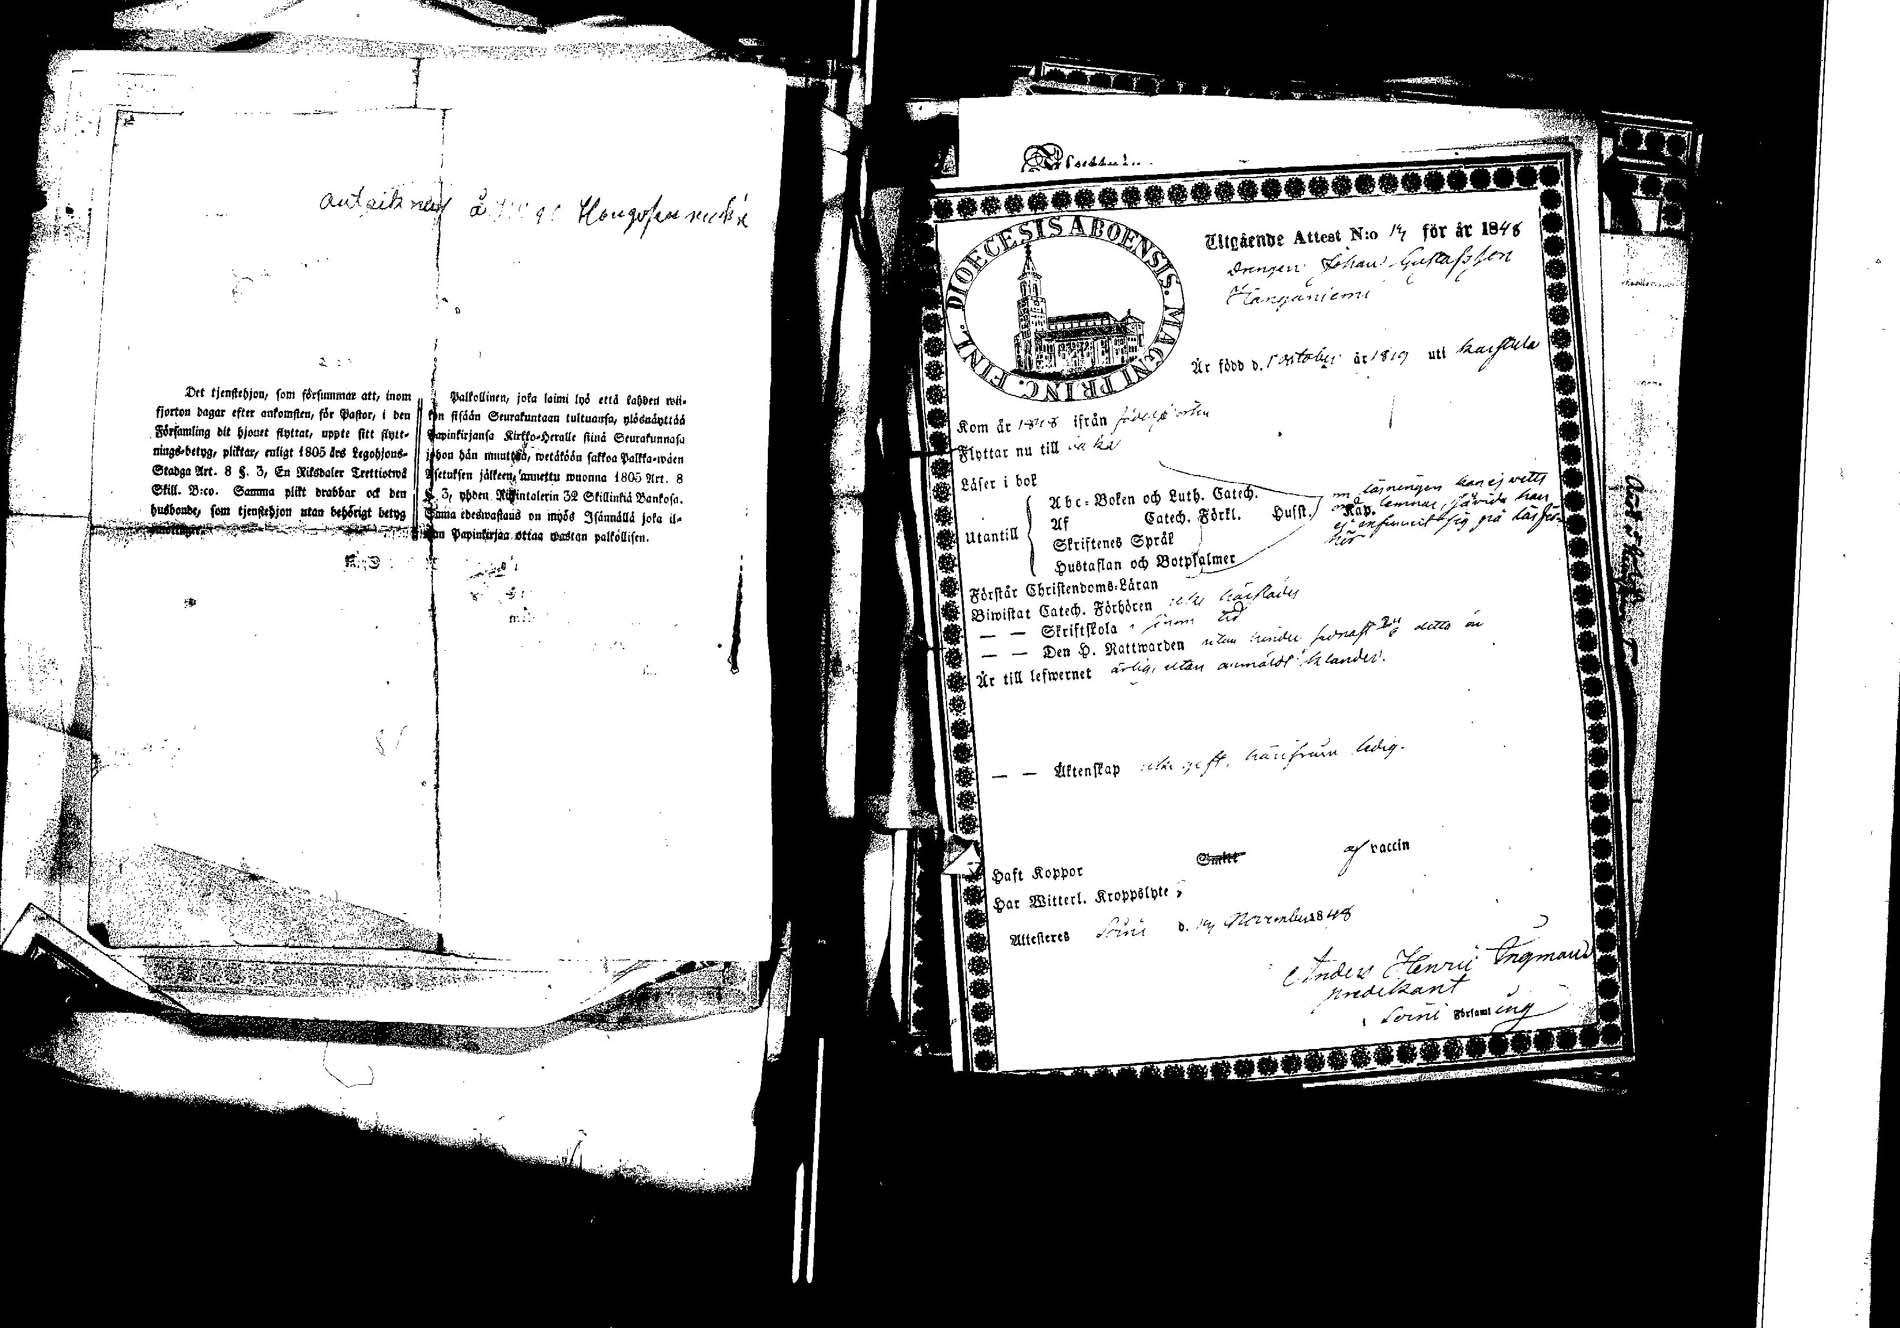 antecknas å Hongos
Det tjenstehjon, som försummar att, inom
fjorton dagar efter ankomsten, för Pastor, i den
Församling dit hjonet flyttat, uppte sitt flytt-
nings-betyg, pliktar, enligt 1805 års Legohjons-
Stadga Art. 8 §. 3, En Riksdaler Trettiotwå
Skill. B:co. Samma plikt drabbar ock den
husbonde, som tjenstehjon utan behörigt betyg
emottager.
Palkollinen, joka laimi lyö että kahden wii-
kon sisään Seurakuntaan tultuansa, ylösnäyttää
Papinkirjansa Kirkko-Heralle siinä Seurakunnasa
johon hän muuttaa, wetäköön sakkoa Palkka-wäen
Asetuksen jälkeen, annettu wuonna 1805 Art. 8
§. 3, yhden Riksintalerin 32 Skillinkiä Bankosa.
Sama edeswastaus on myös Isännällä joka il-
man Papinkirjaa ottaa wastan palkollisen.
DIOECESIS ABOENSIS. MAGNI PRINC. FINL.
Utgående Attest N:o 19 för år 1848
Drengen Johan Gustafsson
Hanganiemi
Är född d. 1 October år 1819 uti Karstula
Kom år 1818 ifrån födelseorten
Flyttar nu till
Läser i bok
Utantill
Abc-Boken och Luth. Catech.
Af Catech. Förkl. Husft. Kap.
Skriftenes Språk
Hustaflan och Botpsalmer
om läsningen kan ej wetts
lemnas, han
ej sig på
Förstår Christendoms-Läran
Biwistat Catech. Förhören icke härstädes
— — Skriftskola i sinom tid
— — Den H. Nattwarden utan hinder senast detta år
Är till lefwernet ärlig, utan anmäldt klander.
— — Äktenskap icke gift, härifrån ledig.
Haft Koppor af vaccin
Har Witterl. Kroppslyte
Attesteres Soini d. 19 November 1848
Anders Henric Ingman
predikant
i Soini Församling